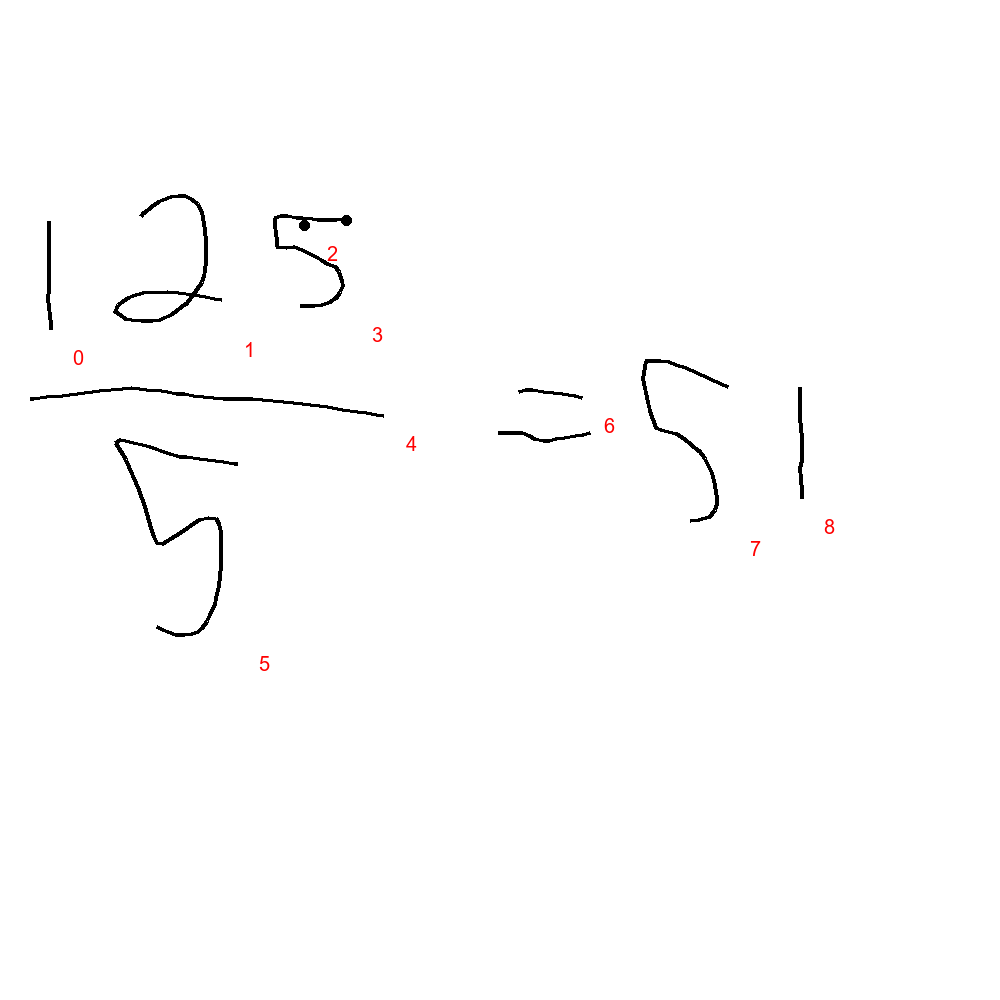 125
5
= 51
0
1
2
3
4
5
6
7
8